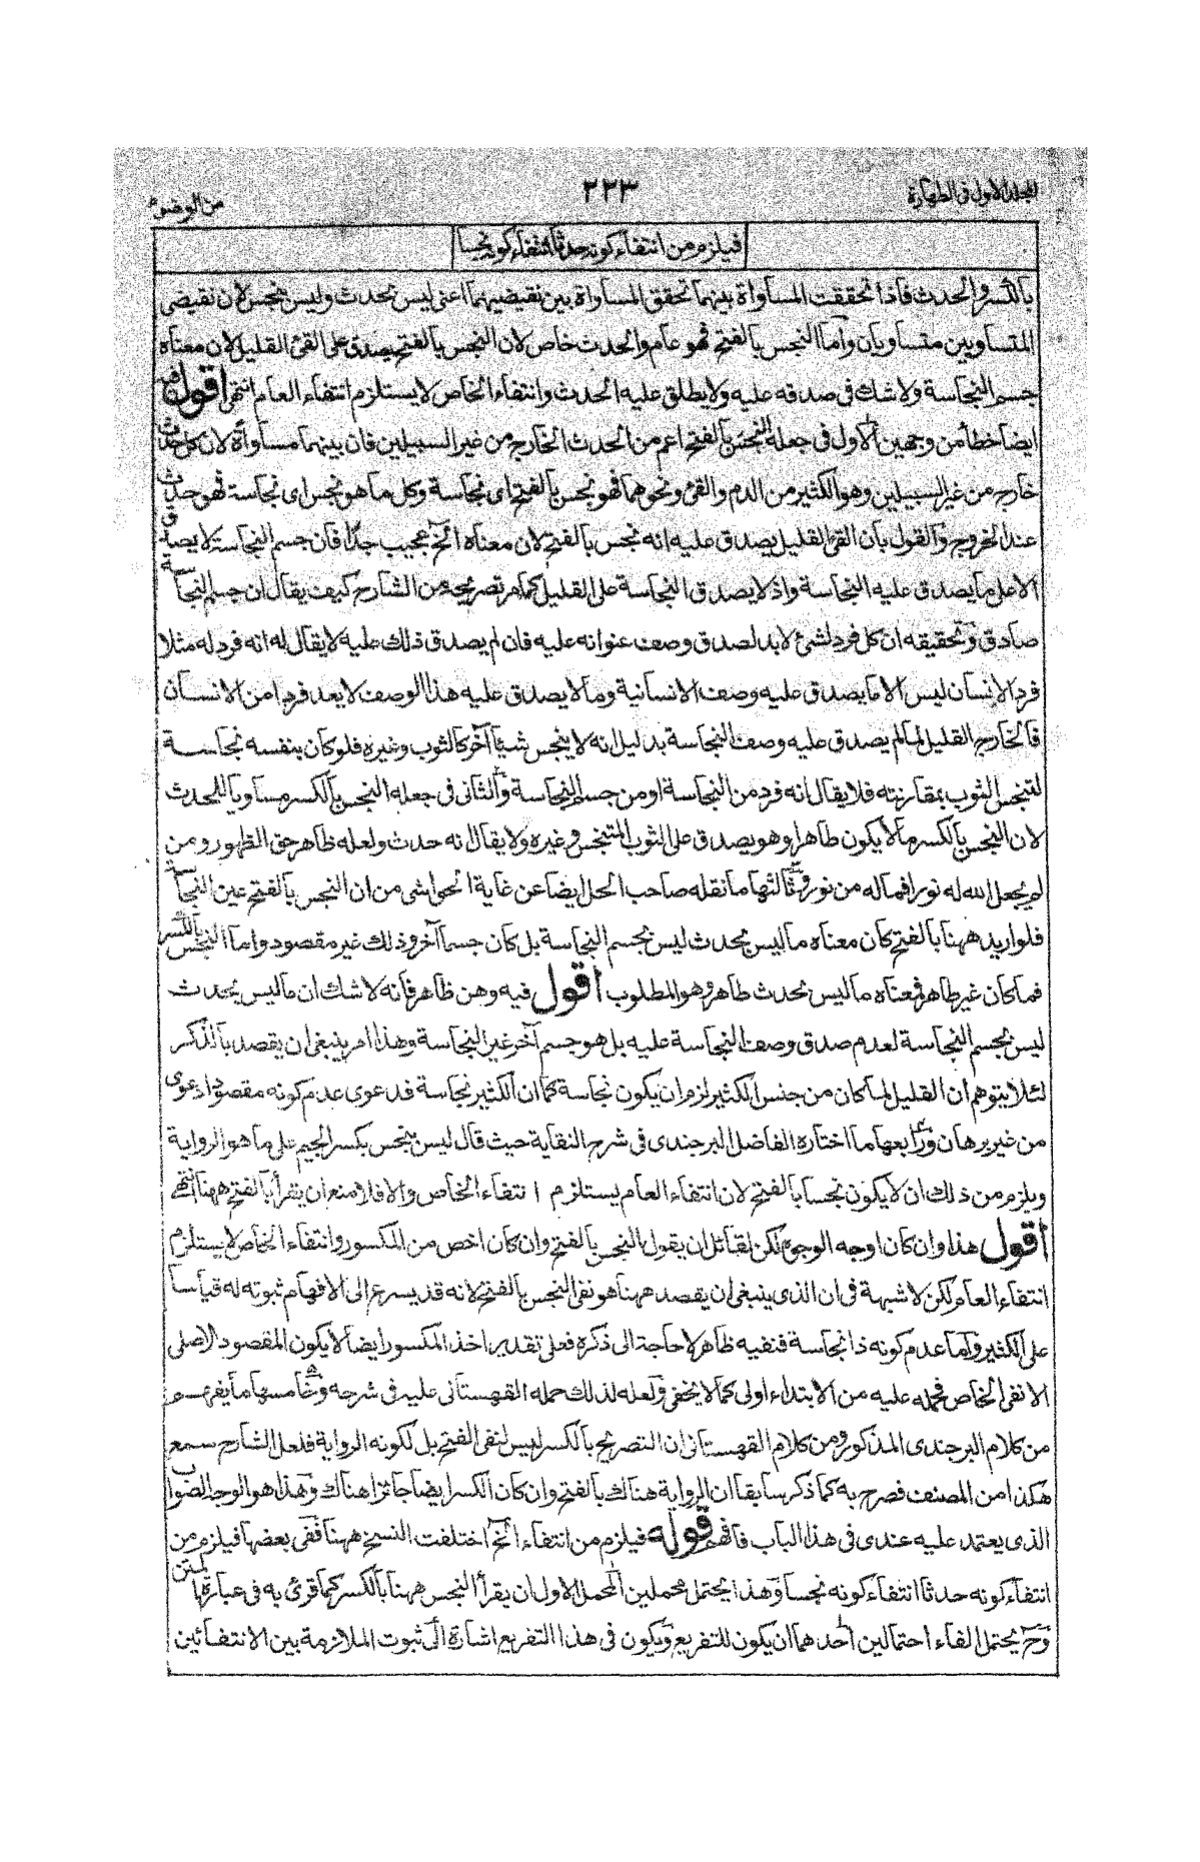 المجلد الاول فى الطهارة
٢٢٣
من الوضوء
فيلزم من انتفاء كونه حدثا انتفاء كونه نجسا
بالكسر والحدث فاذا تحققت المساواة بينهما تحقق المساواة بين نقيضيهما اعنى ليس بحدث وليس بنجس لان نقيضى
المتساويين متساويان واما النجس بالفتح فهو عام والحدث خاص لان النجس بالفتح يصدق على القئ القليل لان معناه
جسم النجاسة ولا شك فى صدقه عليه ولا يطلق عليه الحدث وانتفاء الخاص لا يستلزم انتفاء العام انتهى اقول فيه
ايضا خطأ من وجهين الاول فى جعله النجس بالفتح اعم من الحدث الخارج من غير السبيلين فان بينهما مساواة لان كل حدث
خارج من غير السبيلين وهو الكثير من الدم والقئ ونحوهما فهو نجس بالفتح اى نجاسة وكل ما هو نجس اى نجاسة فهو حدث
عند الخروج والقول بان القئ القليل يصدق عليه انه نجس بالفتح لان معناه الخ عجيب جدا فان جسم النجاسة لا يصدق
الا على ما يصدق عليه النجاسة واذ لا يصدق النجاسة على القليل كما مر تصريحه من الشارح كيف يقال ان جسم النجاسة
صادق وتحقيقه ان كل فرد لشئ لا بد لصدق وصف عنوانه عليه فان لم يصدق ذلك عليه لا يقال له انه فرد له مثلا
فرد الانسان ليس الا ما يصدق عليه وصف الانسانية وما لا يصدق عليه هذا الوصف لا يعد فردا من الانسان
فالخارج القليل لما لم يصدق عليه وصف النجاسة بدليل انه لا ينجس شيئا آخر كالثوب وغيره فلو كان بنفسه نجاسة
لتنجس الثوب بمقارنته فلا يقال انه فرد من النجاسة او من جسم النجاسة والثانى فى جعله النجس بالكسر مساويا للحدث
لان النجس بالكسر ما لا يكون طاهرا وهو يصدق على الثوب المتنجس وغيره ولا يقال انه حدث ولعله ظاهر حق الظهور ومن
لم يجعل الله له نورا فما له من نور وثالثها ما نقله صاحب الحل ايضا عن غاية الحواشى من ان النجس بالفتح عين النجاسة
فلو اريد ههنا بالفتح كان معناه ما ليس بحدث ليس بجسم النجاسة بل كان جسما آخر وذلك غير مقصود واما النجس بالكسر
فما كان غير طاهر فمعناه ما ليس بحدث طاهر وهو المطلوب اقول فيه وهن ظاهر فانه لا شك ان ما ليس بحدث
ليس بجسم النجاسة لعدم صدق وصف النجاسة عليه بل هو جسم آخر غير النجاسة وهذا امر ينبغى ان يقصد بالذكر
لئلا يتوهم ان القليل لما كان من جنس الكثير لزم ان يكون نجاسة كما ان الكثير نجاسة فدعوى عدم كونه مقصودا دعوى
من غير برهان ورابعها ما اختاره الفاضل البرجندى فى شرح النقاية حيث قال ليس بنجس بكسر الجيم على ما هو الرواية
ويلزم من ذلك ان لا يكون نجسا بالفتح لان انتفاء العام يستلزم انتفاء الخاص والا فلا منع ان يقرأ بالفتح ههنا انتهى
اقول هذا وان كان اوجه الوجوه لكن لقائل ان يقول النجس بالفتح وان كان اخص من المكسور وانتفاء الخاص لا يستلزم
انتفاء العام لكن لا شبهة فى ان الذى ينبغى ان يقصد ههنا هو نفى النجس بالفتح لانه قد يسرع الى الافهام ثبوته له قياسا
على الكثير واما عدم كونه ذا نجاسة فنفيه ظاهر لا حاجة الى ذكره فعلى تقدير اخذ المكسور ايضا لا يكون المقصود الاصلى
الا نفى الخاص فحمله عليه من الابتداء اولى كما لا يخفى ولعله لذلك حمله القهستانى عليه فى شرحه وخامسها ما يفهم
من كلام البرجندى المذكور ومن كلام القهستانى ان التصريح بالكسر ليس لنفى الفتح بل لكونه الرواية فلعل الشارح سمع
هكذا من المصنف فصرح به كما ذكر سابقا ان الرواية هناك بالفتح وان كان الكسر ايضا جائزا هناك وهذا هو الوجه الصواب
الذى يعتمد عليه عندى فى هذا الباب فافهم قوله فيلزم من انتفاء الخ اختلفت النسخ ههنا ففى بعضها فيلزم من
انتفاء كونه حدثا انتفاء كونه نجسا وهذا يحتمل محملين المحمل الاول ان يقرأ النجس ههنا بالكسر كما قرئ به فى عبارة المتن
وح يحتمل الفاء احتمالين احدهما ان يكون للتفريع ويكون فى هذا التفريع اشارة الى ثبوت الملازمة بين الانتفائين